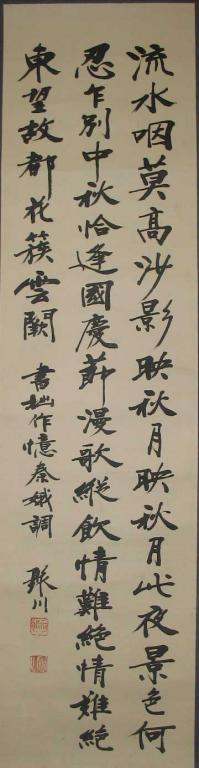 流水咽莫高沙影映秋月映秋月此夜景色何
忍乍別中秋恰逢國慶節漫歌縱飲情難絕情難絕
東望故都花簇雲闕 書拙作憶秦娥調 川